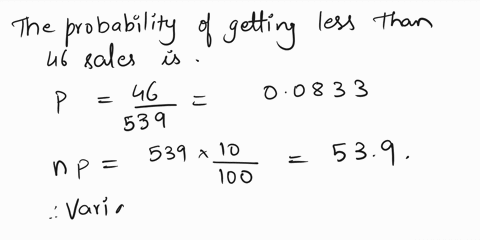 The probability of getting less than
46 sales is.
P = 46/539 = 0.0833
np = 539 × 10/100 = 53.9.
∴ Vari